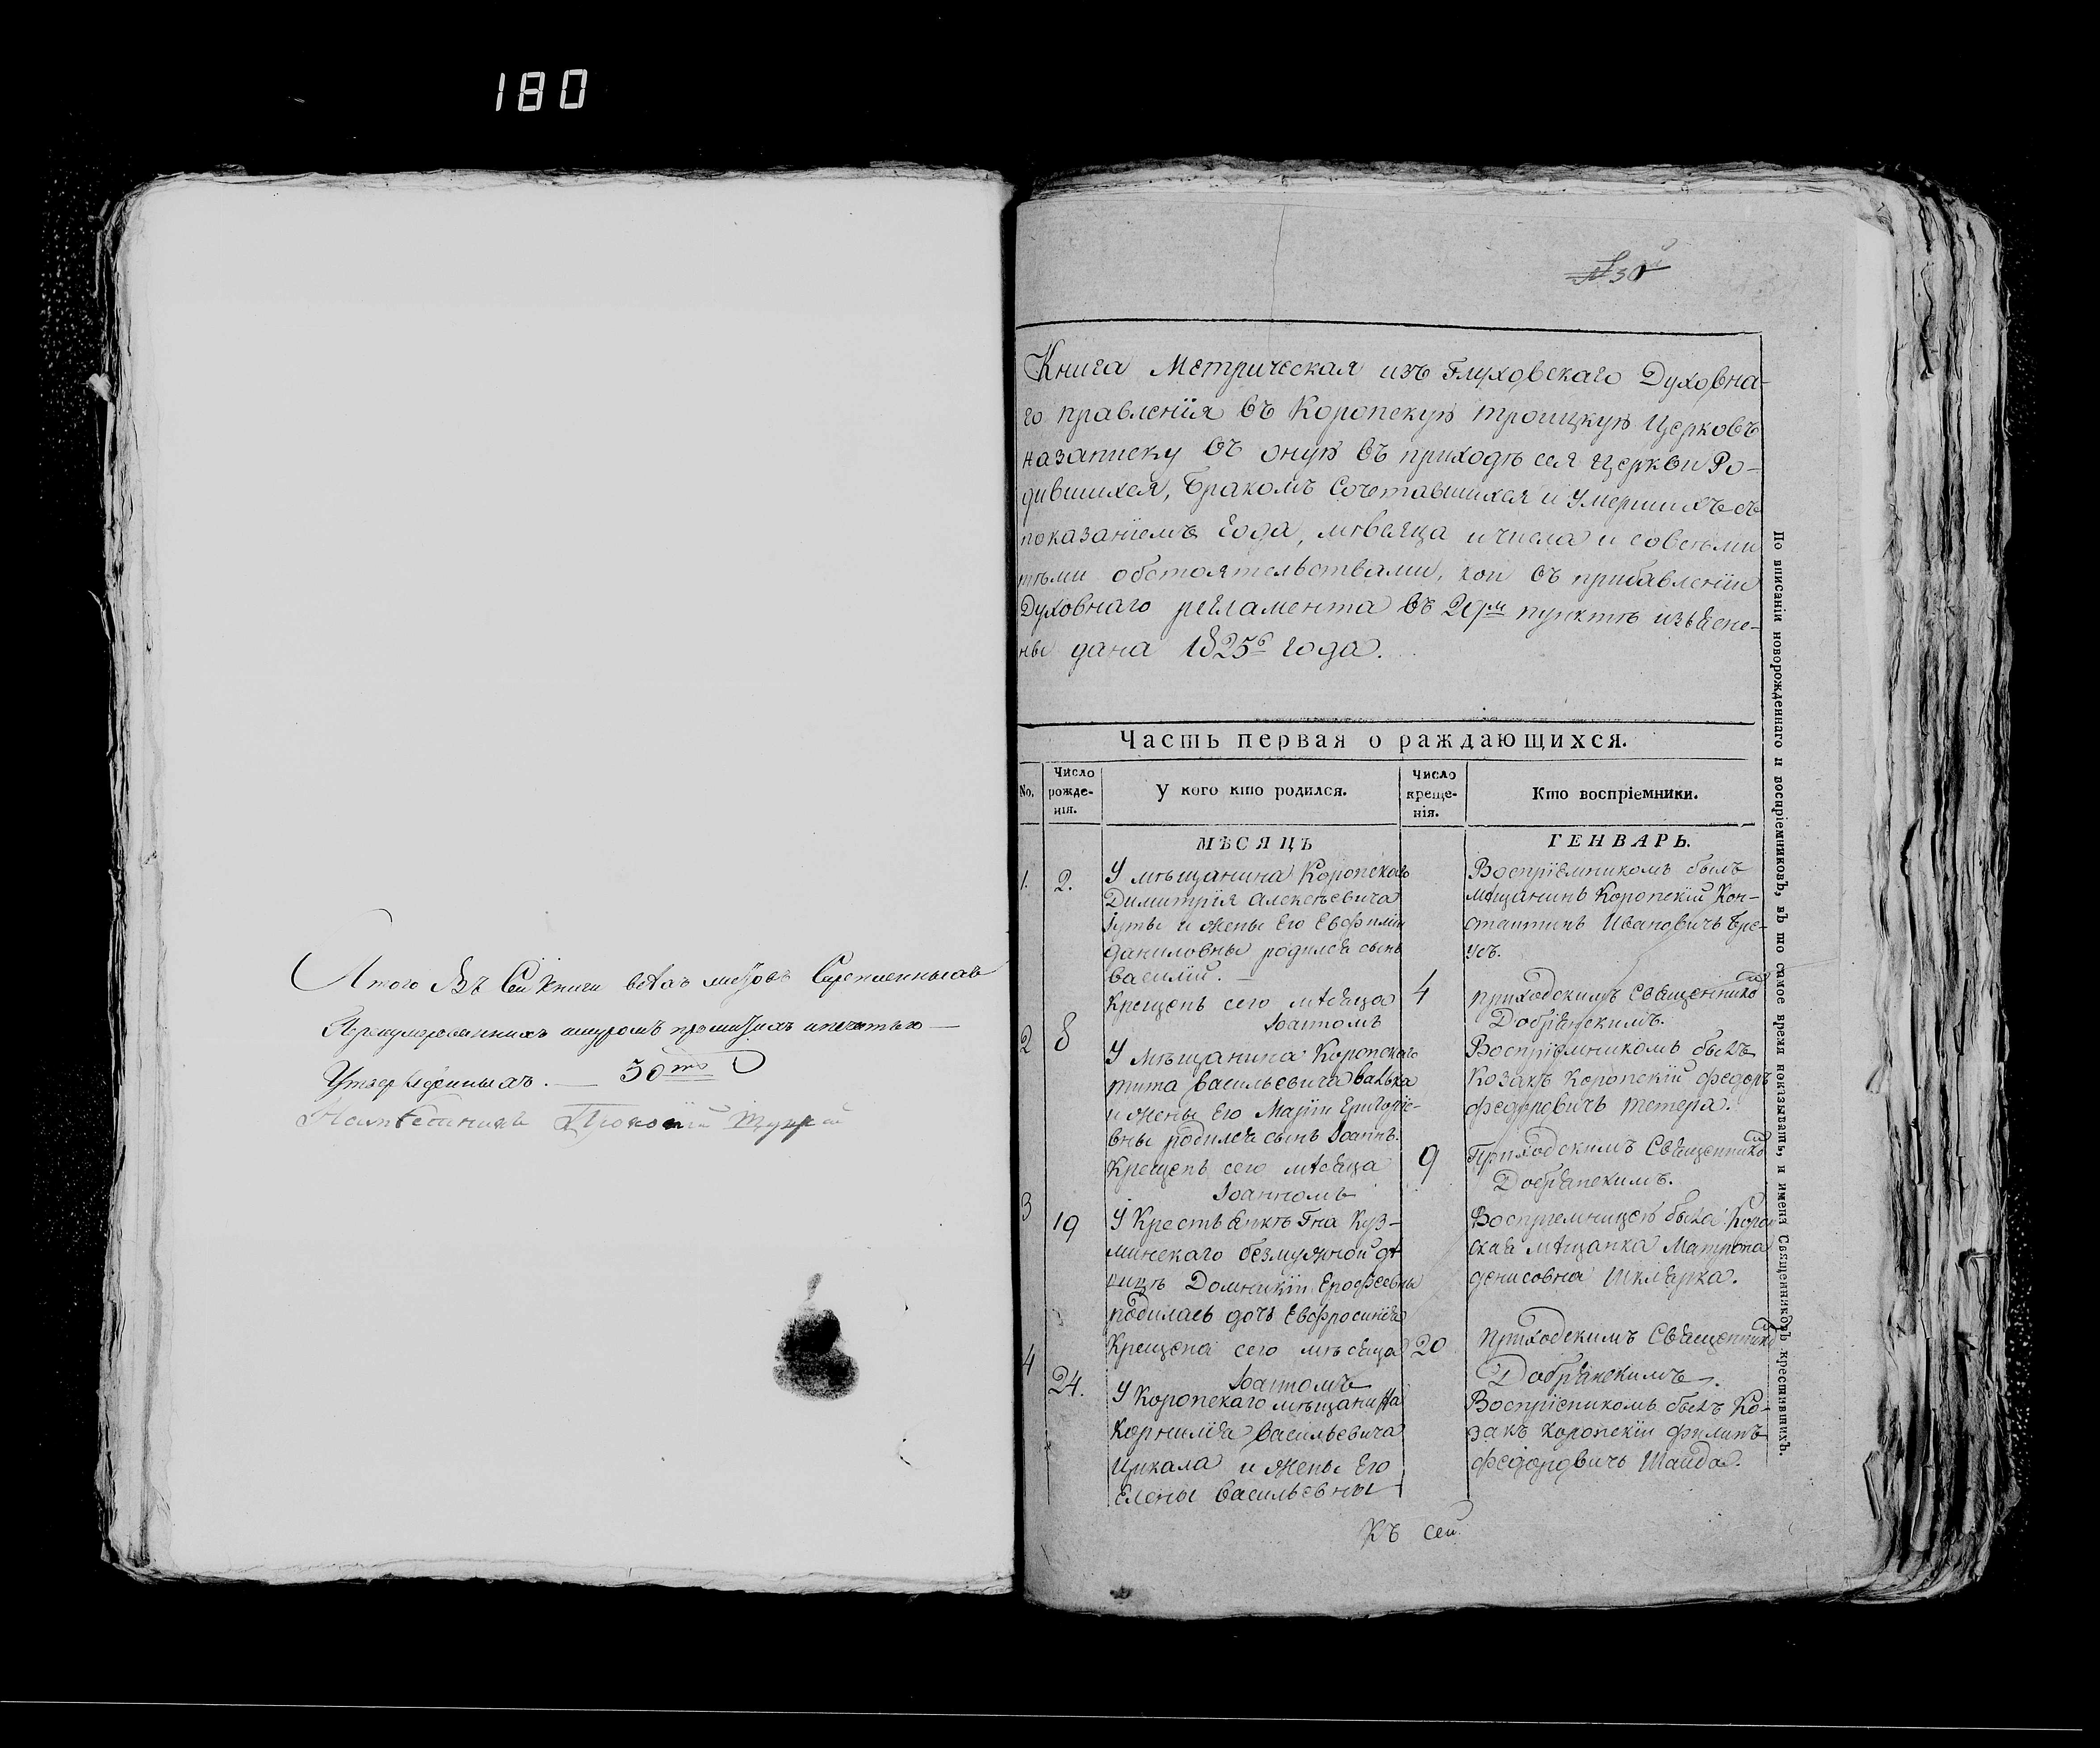 180
Итого Въ Сей книги всѣхъ листовъ Скрепленныхъ
шнуромъ и печатью —
Утвержденныхъ. — 30
№ 30
Книга Метрическая изъ Глуховскаго Духовна-
го правленїя въ Коропскую троицкую Церковь
на записку въ оную въ приходѣ сея Церкви Ро-
дившихся, Бракомъ Сочетавшихся и Умершихъ съ
показанїемъ года, мѣсяца и числа и со всѣми
тѣми обстоятельствами, кои въ прибавленїи
Духовнаго регламента въ 29м пунктѣ изъясне-
ны дана 1825го года.
Часть первая о раждающихся.
No.
Число рожде-нія.
У кого кто родился.
Число креще-нія.
Кто воспріемники.
МѢСЯЦЪ
ГЕНВАРЬ.
1.
2.
У мѣщанина Коропскаго
Димитрїя Алексѣевича
Гуты и жены Его Евфимїи
Даниловны родился сынъ
Василїй. —
Крещенъ сего мѣсяца
Іоанномъ
4
Воспрїемникомъ былъ
мѣщанинъ Коропскїй Кон-
стантинъ Ивановичъ Бре-
усъ.
приходскимъ Священникомъ
Добрянскимъ.
2
8
У Мѣщанина Коропскаго
тита Васильевича Валька
и жены Его Марїи Григорїе-
вны родился сынъ Іоаннъ.
Крещенъ сего мѣсяца
Іоанномъ
9
Воспрїемникомъ былъ
Козакъ Коропскїй Федоръ
Федоровичъ Тетеря.
Приходскимъ Священникомъ
Добрянскимъ.
3
19
У Крестьянки Гна Куз-
минскаго безмужной дѣ
вицы Домникїи Ерофеевны
родилась дочь Евфросинїя
Крещена сего мѣсяца
Іоанномъ
20
Воспрїемницею была Короп
ская мѣщанка Матрона
Денисовна Шклярка.
Приходскимъ Священникомъ
Добрянскимъ.
4
24.
У Коропскаго мѣщанина
Корнилїя Васильевича
Цикала и жены Его
Елены Васильевны
Воспрїемникомъ былъ Ко-
закъ Коропскїи Филипъ
Федоровичъ Шаида.
Къ сей
По вписаніи новорожденнаго и воспріемниковъ, въ то самое время показывать, и имена Священниковъ крестившихъ.